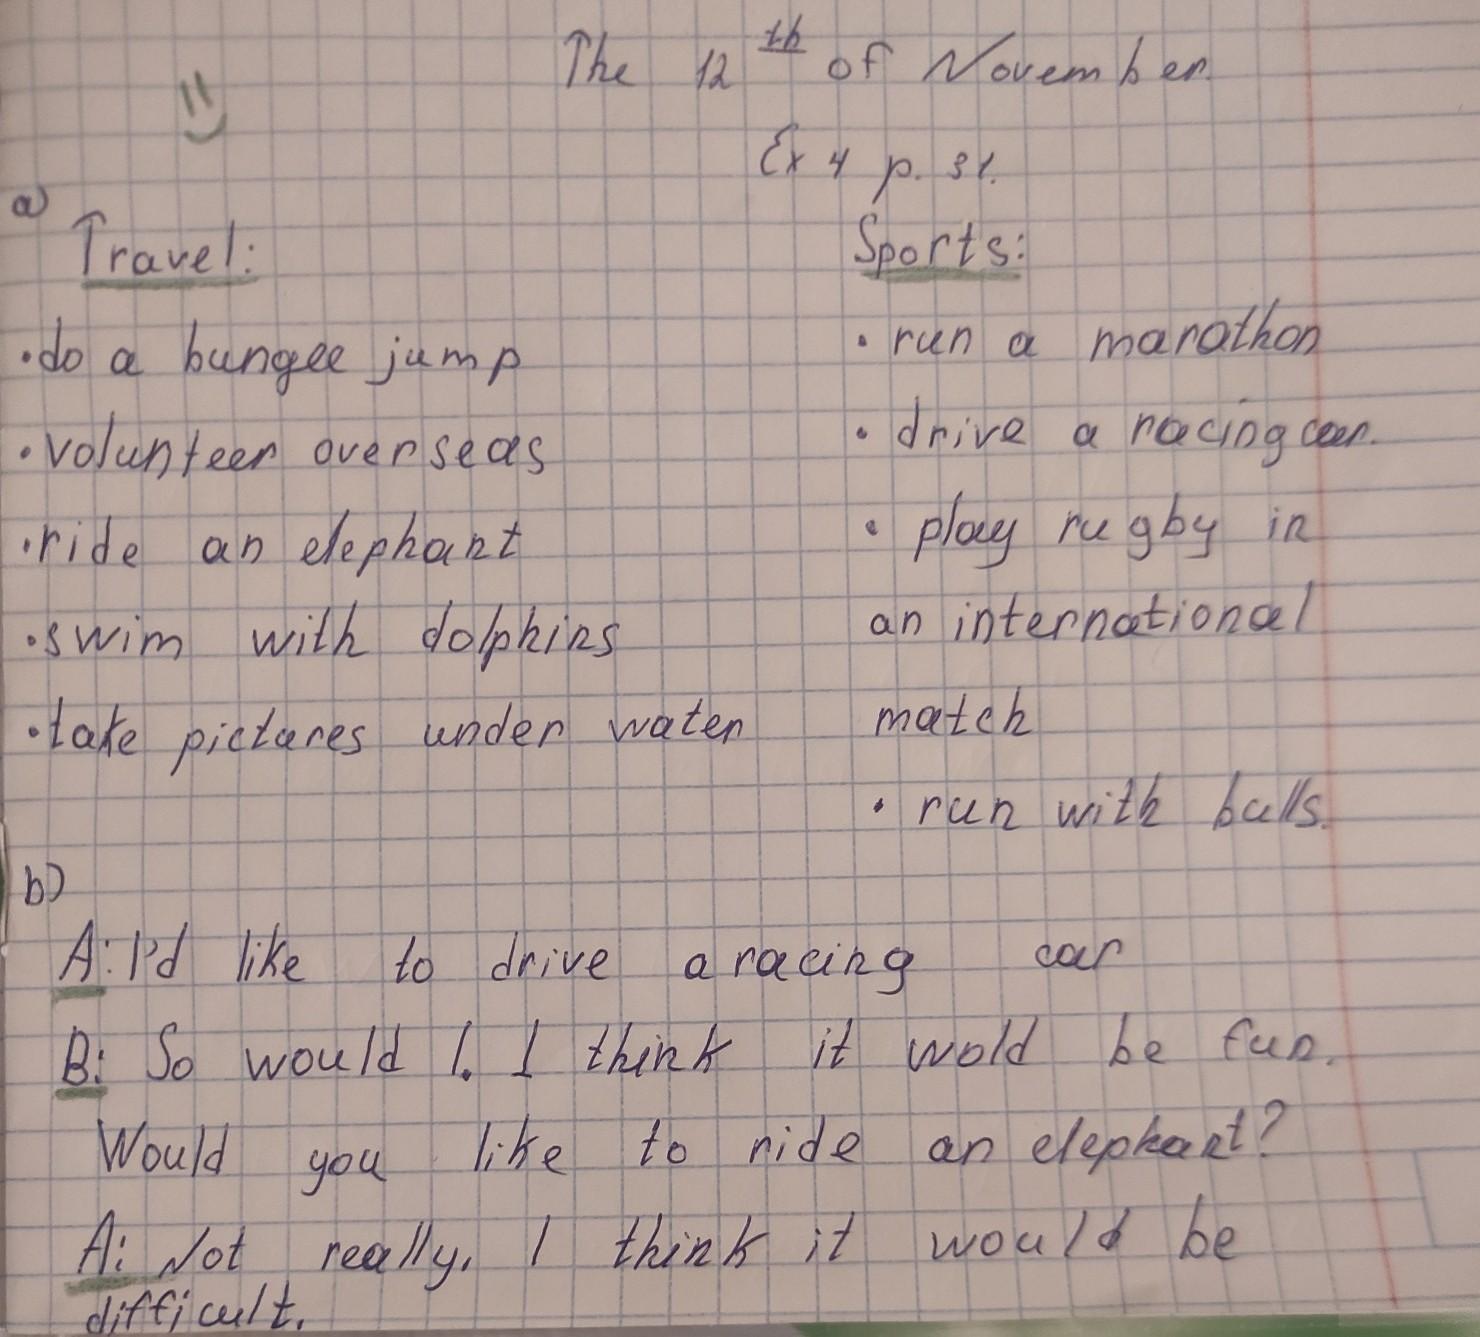 The 12th of November.
Ex 4 p. 31.
a)
Travel:
•do a bungee jump
•volunteer overseas
•ride an elephant
•swim with dolphins
•take pictures under water
Sports:
• run a marathon
• drive a racing car.
• play rugby in
an international
match
• run with bulls.
b)
A: I'd like to drive a racing car
B: So would I. I think it wold be fun.
Would you like to ride an elephant?
A: Not really, I think it would be
difficult.